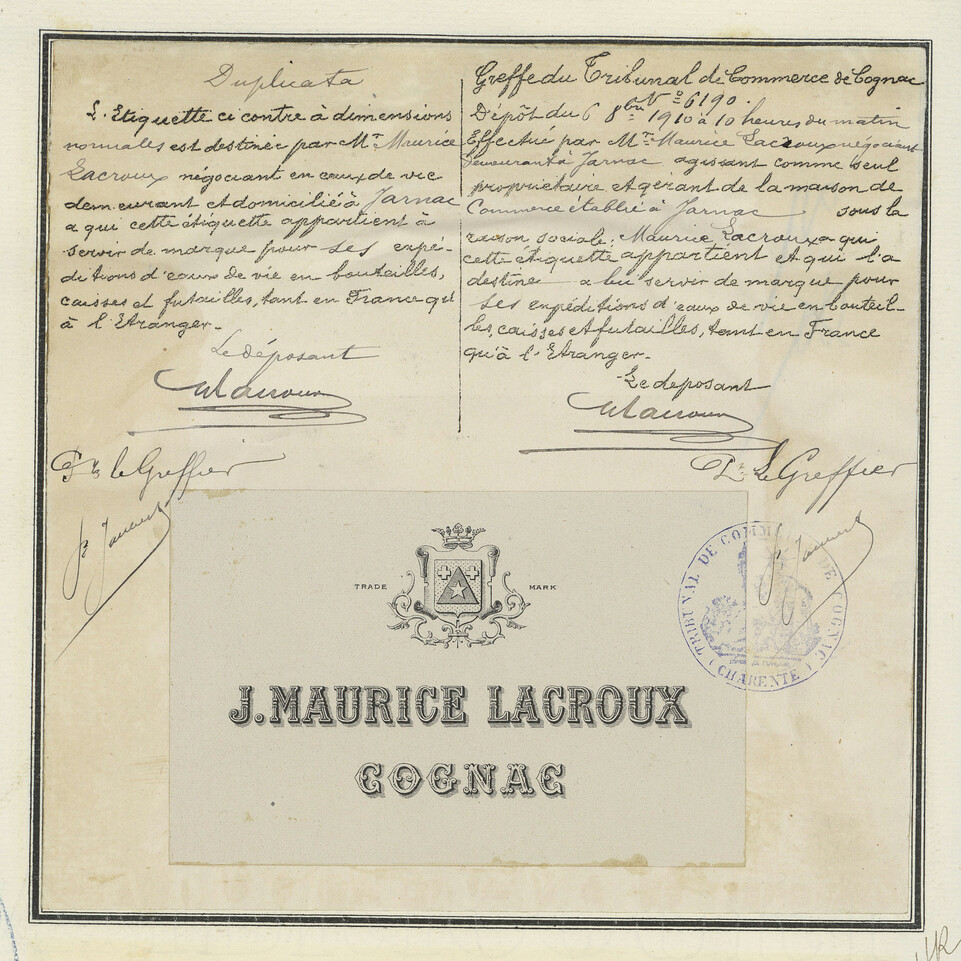 Duplicata
L'Etiquette ci contre à dimensions
normales est destinée par Mr Maurice
Lacroux négociant en eaux de vie
demeurant et domicilié à Jarnac
a qui cette étiquette appartient à
servir de marque pour ses expé-
ditions d'eaux de vie en bouteilles,
caisses et futailles, tant en France qu'
à l'Etranger.-
Le déposant
MLacroux
Pr le Greffier
Greffe du Tribunal de Commerce de Cognac
No 6190.
Dépôt du 6 8bre 1910 à 10 heures du matin
Effectué par Mr Maurice Lacroux négociant
demeurant à Jarnac agissant comme seul
propriétaire et gérant de la maison de
Commerce établie à Jarnac sous la
raison sociale: Maurice Lacroux a qui
cette étiquette appartient et qui l'a
destine a servir de marque pour
ses expéditions d'eaux de vie en bouteil-
les, caisses et futailles, tant en France
qu'à l'Etranger.-
Le deposant
MLacroux
Pr Le Greffier
TRADE MARK
J. MAURICE LACROUX
COGNAC
TRIBUNAL DE COMMERCE DE COGNAC
(CHARENTE)